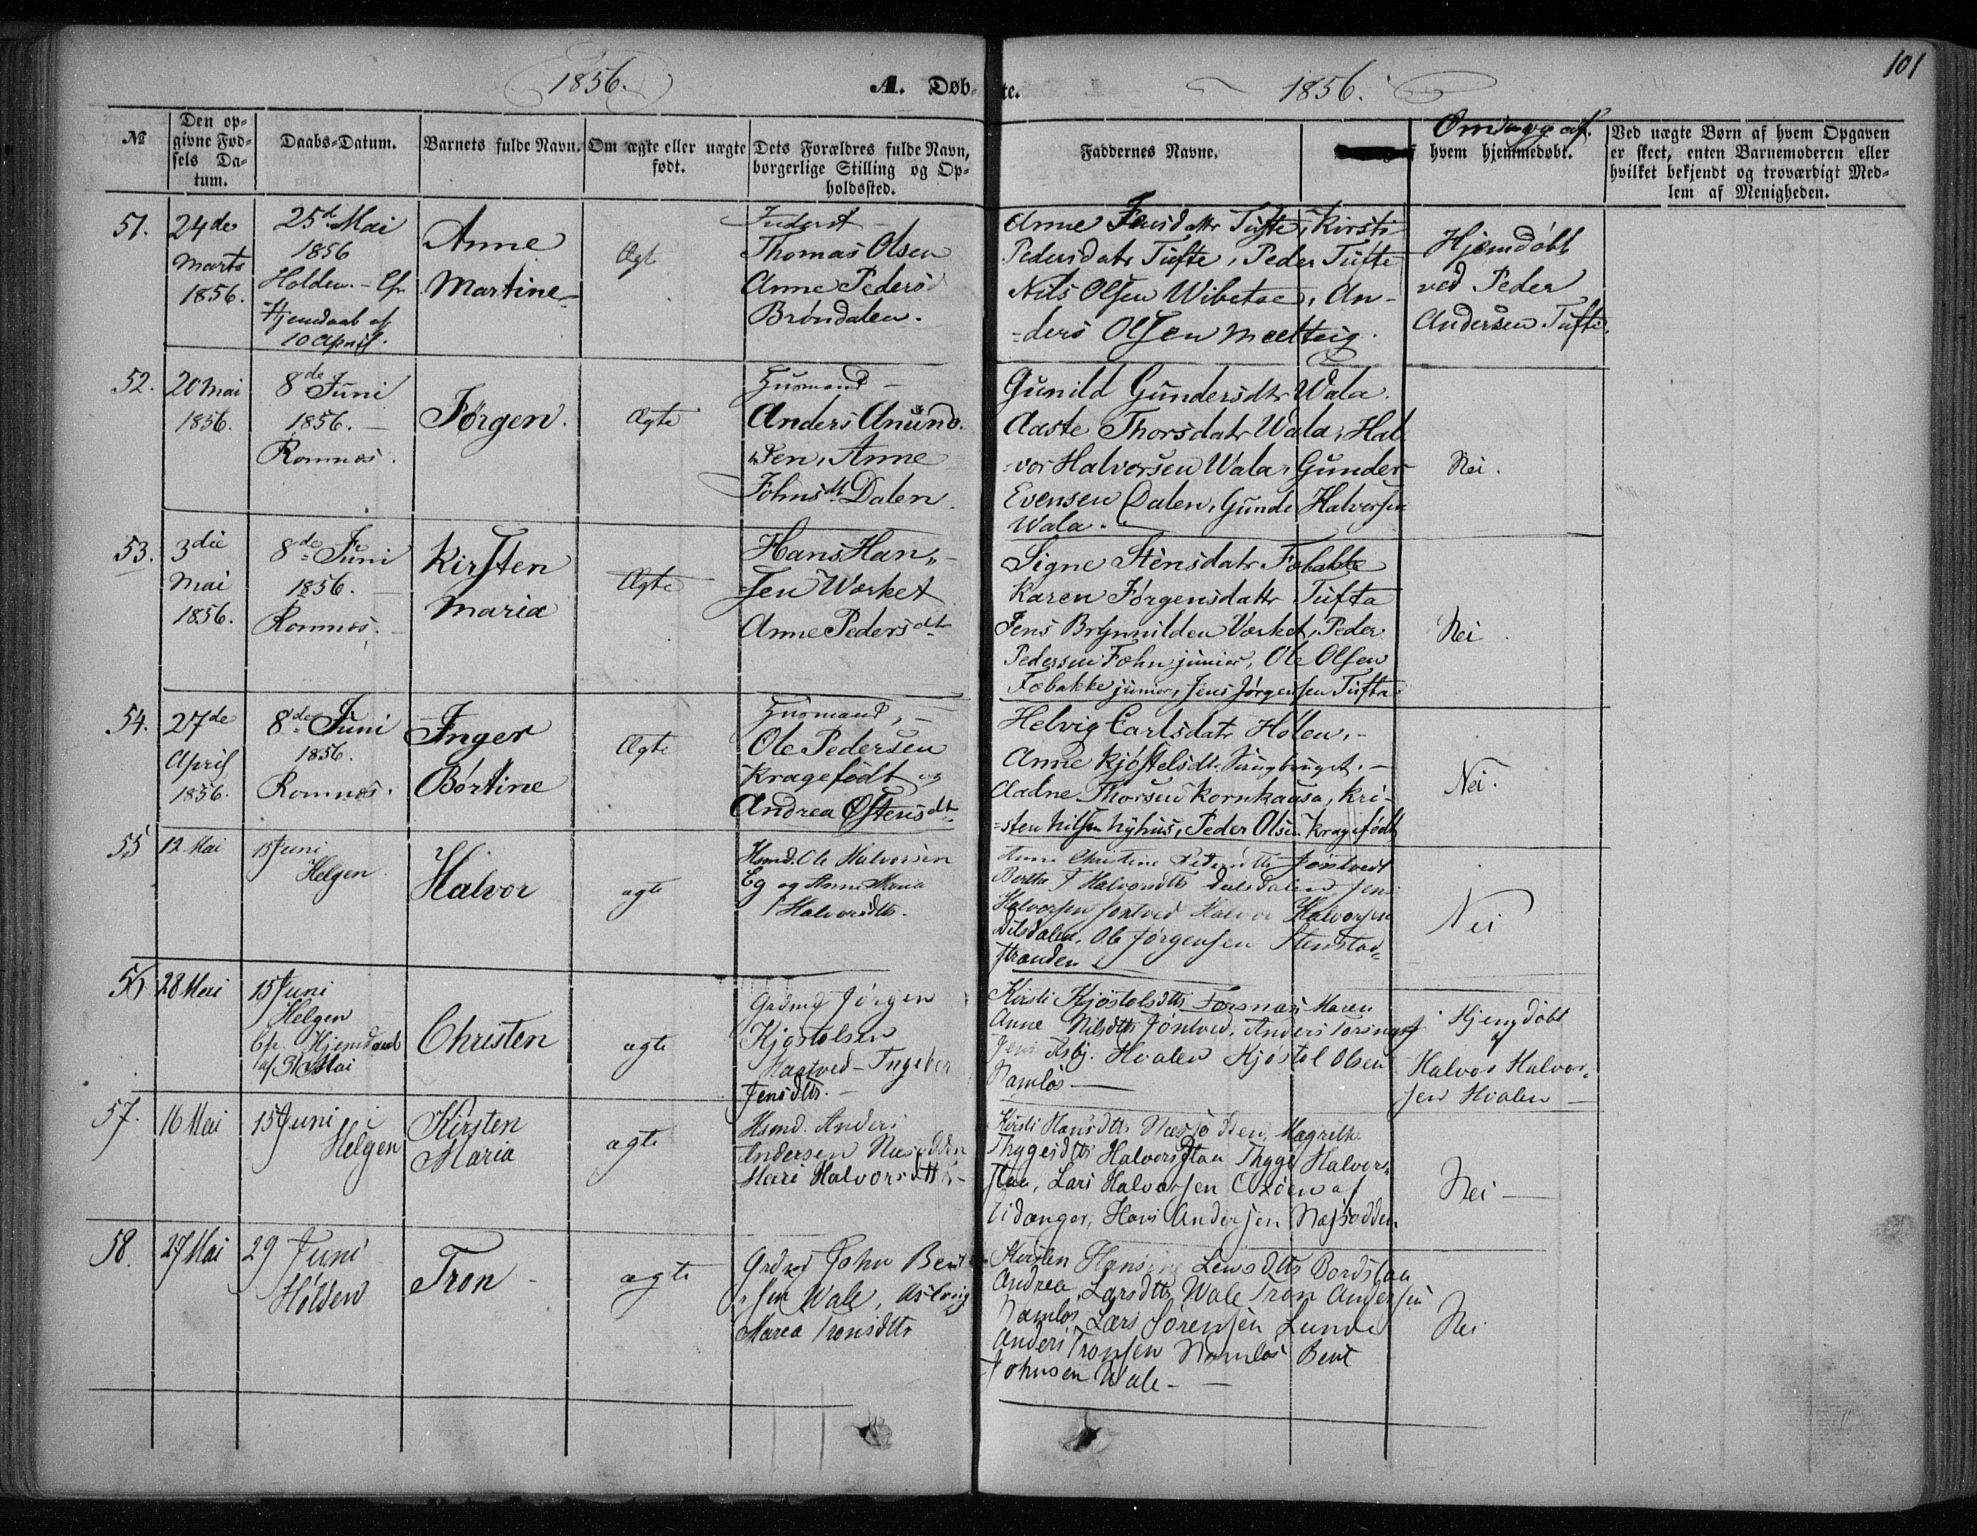 101
1856. A. Døb- te. 1856.
№
Den op-
givne Fød-
sels Da-
tum.
Daabs-Datum.
Barnets fulde Navn.
Om ægte eller uægte
født.
Dets Forældres fulde Navn,
borgerlige Stilling og Op-
holdssted.
Faddernes Navne.
Om
hvem hjemmedøbt.
Ved uægte Børn af hvem Opgaven
er skeet, enten Barnemoderen eller
hvilket bekjendt og troværdigt Med-
lem af Menigheden.
51.
24de
Marts
1856.
25d. Mai
1856
Holden. – Cfr.
Hjemdaab af
10 April.
Anne
Martine
Ægte
Inderst –
Thomas Olsen
Anne Pedersd
Brøndalen.
Anne Jensdattr Tufte, Kirsti
Pedersdatr Tufte, Peder Tufte
Nils Olsen Wibetoe, An-
-ders Olsen Meelteig.
Hjemdøbt
ved Peder
Andersen Tufte.
52.
20 Mai
1856.
8de Juni
1856. –
Romnæs.
Jørgen.
Ægte
Husmand –
Anders Anund-
sen, Anne
Johnsdt Dalen.
Gunild Gundersdtr Wala.
Aaste Thorsdatr Wala, Hal
-vor Halvorsen Wala, Gunder
Evensen Dalen, Gunde Halvorsen
Wala.
Nei.
53.
3die
Mai
1856.
8de Juni
1856. –
Romnæs.
Kirsten
Maria
Ægte
Hans Han-
sen Værket
Anne Pedersdt
Signe Stensdatr Fobakke
Karen Jørgensdattr Tufta
Jens Brynnilden Værket, Peder
Pedersen Fohn junior, Ole Olsen
Fobakke junior, Jens Jørgensen Tufta
Nei.
54.
27de
April
1856.
8de Juni
1856.
Romnæs.
Inger
Børtine
Ægte
Husmand, –
Ole Pedersen
Kragefødt og
Andrea Østensdt
Helvig Carlsdatr Holen, –
Anne Kjøstelsdt Saugbruget. –
Aadne Thorsen Kornhausa, Kri-
-sten Nilsen Nyhus, Peder Olsen Kragefødt
Nei.
55
12 Mai
15 Juni
Helgen
Halvor
ægte
Hsmd. Ole Halvorsen
Eg og Anne Maria
Halvorsdtr.
Anne Christine Pedersdtr Jøntvedt
Berthe T Halvorsdtr Dalsdalen, Jens
Halvorsen Jøntved Halvor Halvorsen
Dilsdalen, Ole Jørgensen Stenstad-
stranden
Nei
56
28 Mai
15 Juni
Helgen
Cfr. Hjemdaab
af 31 Mai
Christen
ægte
Grdmd Jørgen
Kjøstolsen
Hagtved – Ingeber
Jensdtr. –
Kirsti Kjøstolsdtr Forsnæs Maren
Anne Nilsdtr Jøntved, Anders Forsnæs
Jens Asbj. Hvalen Kjøstol Olsen
Namløs –
Hjemdøbt
af
Halvor Halvor-
sen Hvalen –
57.
16 Mai
15 Juni
Helgen
Kirsten
Maria
ægte
Hsmd. Anders
Andersen Næsodden
Mari Halvorsdtr
Kirsti Hansdtr Næsodden, Magrethe
Thygesdtr Halvorstaa Thyge Halvor-
staa, Lars Halvorsen af
Eidanger, Hans Andersen Næsodden
Nei –
58.
27 Mai
29 Juni
Holden
Tron
ægte
Grdmd John Bent
sen Wale, Aslaug
Marea Tronsdtr
Kirsten Hansine Lensdtr Bordstaa
Andrea Larsdtr Wale Tron Andersen
Namløs Lars Sørensen Lunde
Anders Tronsen Namløs Bent
Johnsen Wale –
Nei